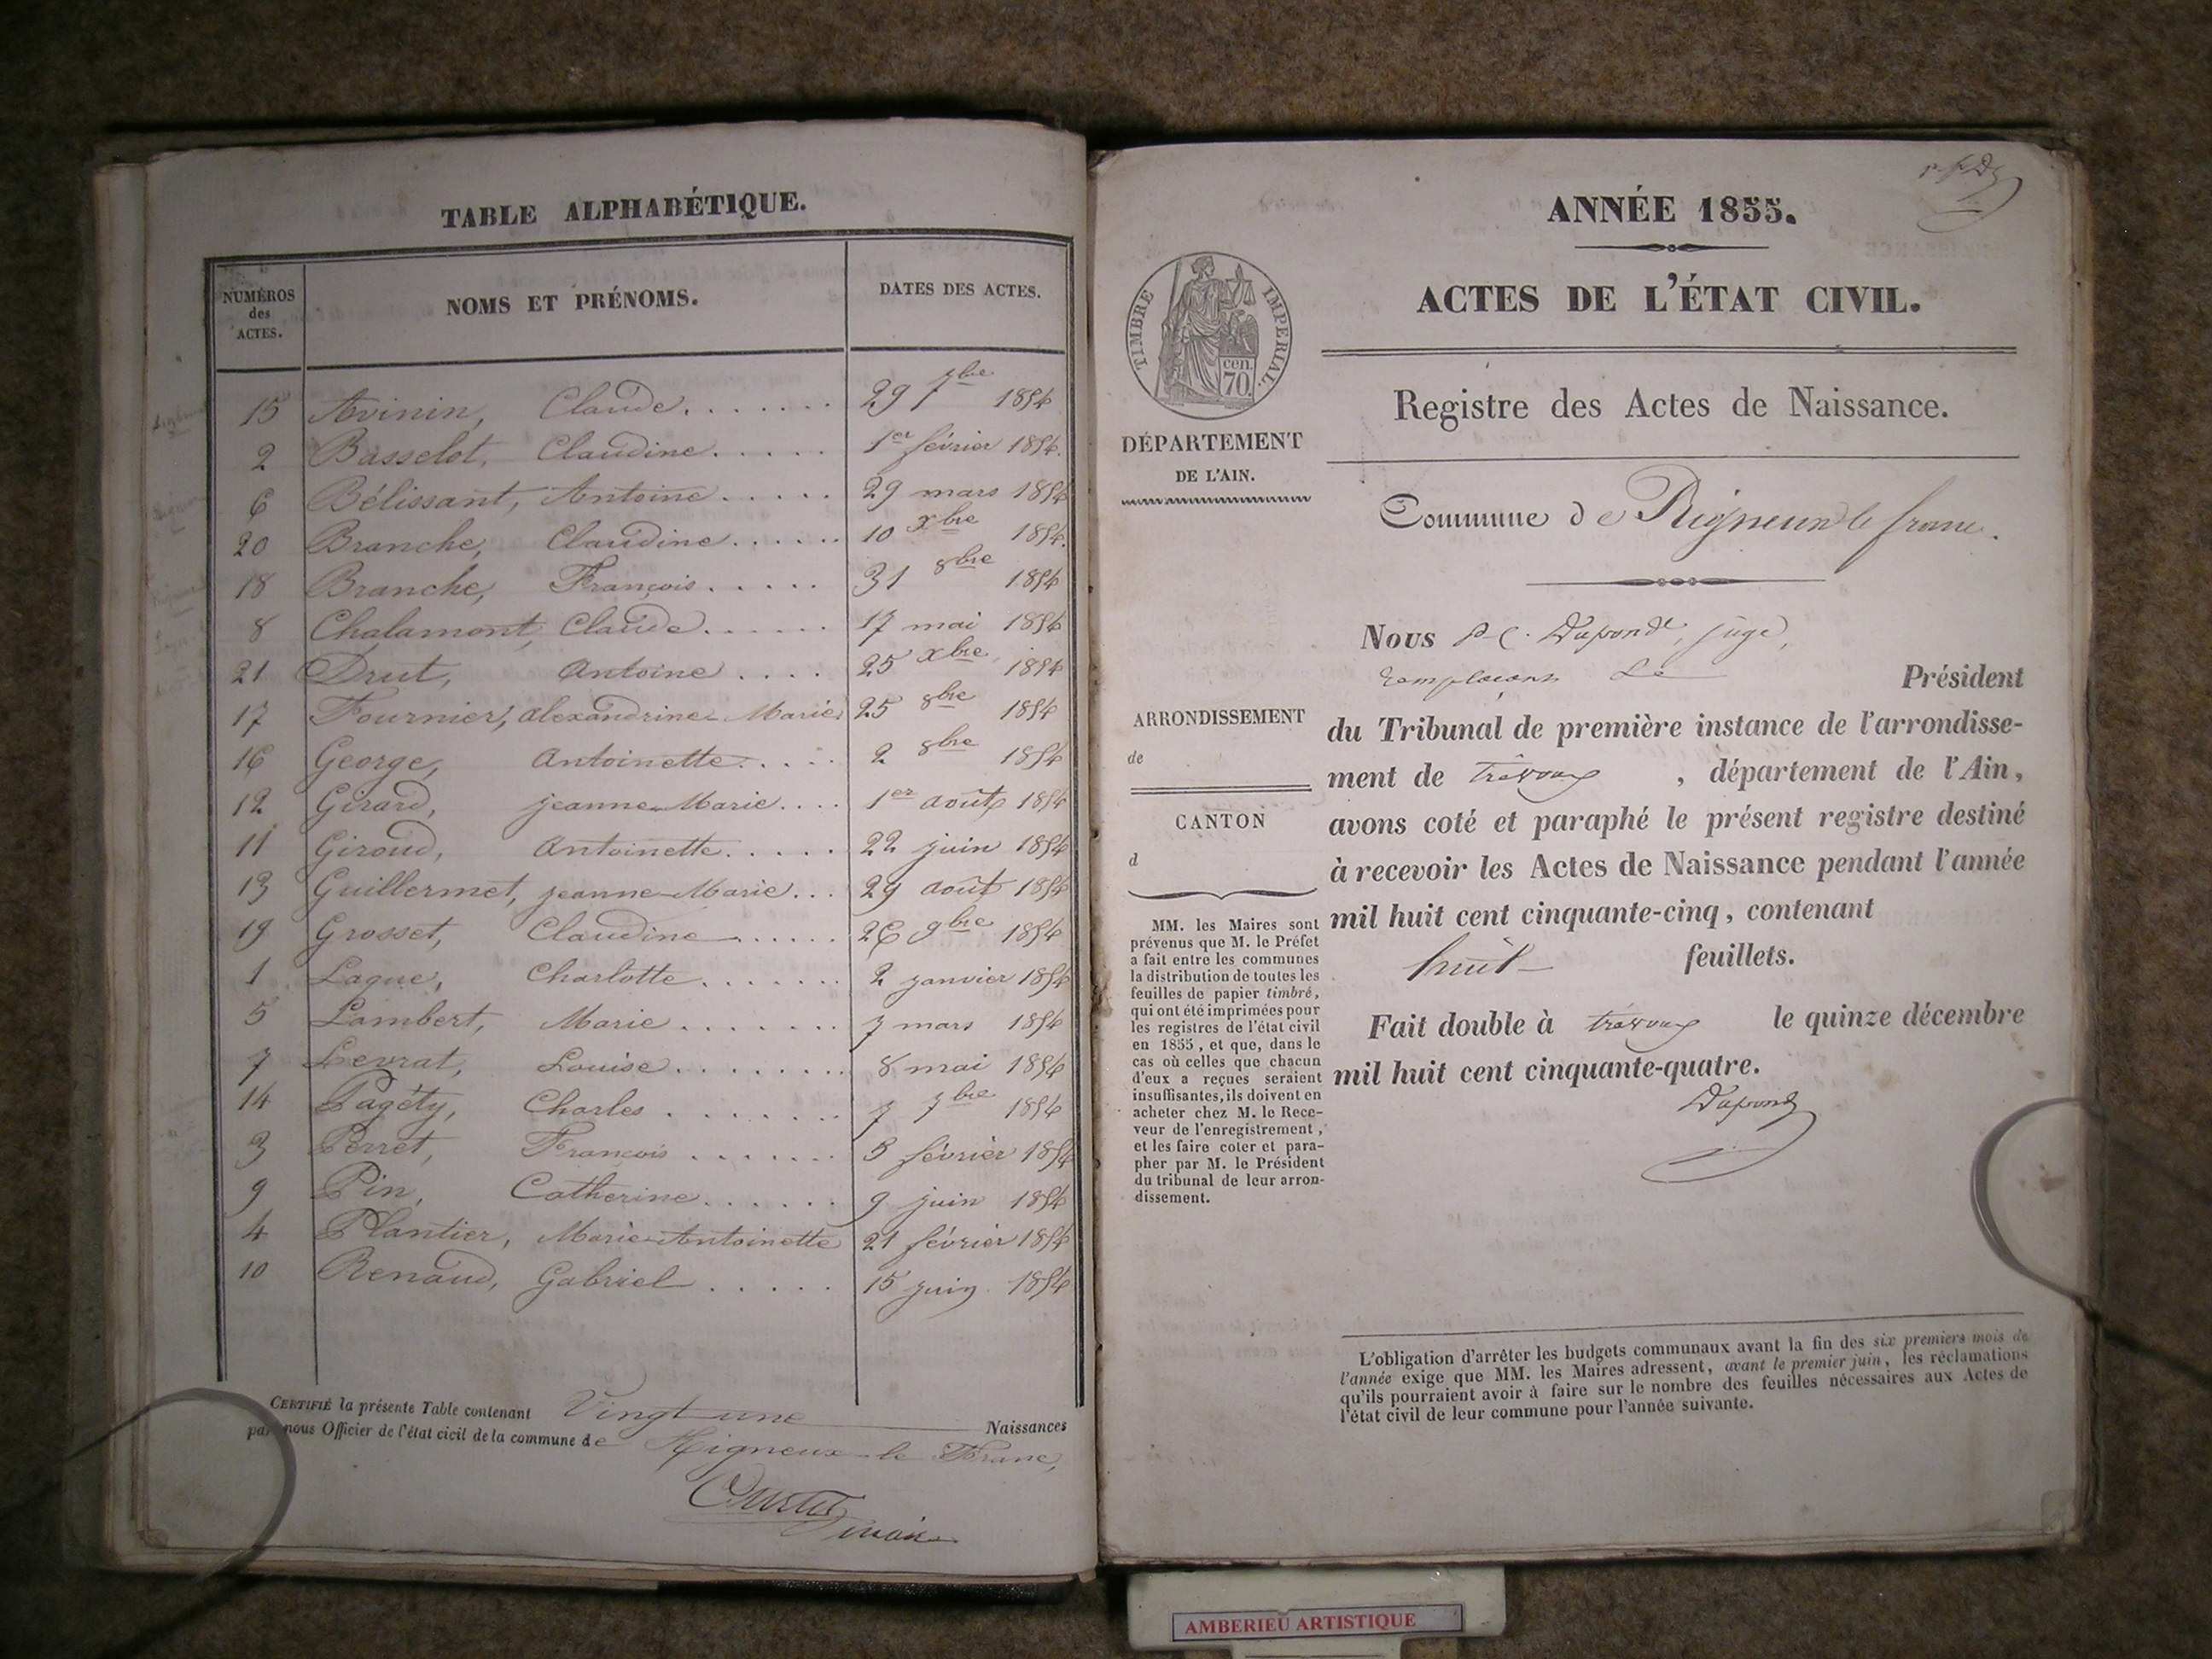 TABLE ALPHABÉTIQUE.
NUMÉROS des ACTES. NOMS ET PRÉNOMS. DATES DES ACTES.
15 Avinin, Claude. 29 7bre 1854
2 Basselot, Claudine. 1er février 1854.
6 Bélissant, Antoine 29 mars 1854
20 Branche, Claudine 10 xbre 1854.
18 Branche, François 31 8bre 1854
8 Chalamont, Claude 17 mai 1854
21 Drut, Antoine 25 xbre 1854
17 Fournier, Alexandrine Marie 25 8bre 1854
16 George, Antoinette 2 8bre 1854
12 Girard, Jeanne-Marie 1er août 1854
11 Giroud, Antoinette 22 juin 1854
13 Guillermet, Jeanne-Marie 29 août 1854
19 Grosset, Claudine 26 9bre 1854
1 Lague, Charlotte 2 janvier 1854
5 Lambert, Marie 7 mars 1854
7 Levrat, Louise 8 mai 1854
14 Pagéty, Charles 7 7bre 1854
3 Perret, François 3 février 1854
9 Pin, Catherine 9 juin 1854
4 Plantier, Marie-Antoinette 21 février 1854
10 Renaud, Gabriel 15 juin 1854
CERTIFIÉ la présente Table contenant Vingt une Naissances
par nous Officier de l'état cicil de la commune de Rigneux le Franc,
maire
ANNÉE 1855.
ACTES DE L'ÉTAT CIVIL.
Registre des Actes de Naissance.
Commune de Rigneux le franc.
TIMBRE IMPERIAL.
cen.
70.
DÉPARTEMENT
DE L'AIN.
ARRONDISSEMENT
de
CANTON
d
MM. les Maires sont
prévenus que M. le Préfet
a fait entre les communes
la distribution de toutes les
feuilles de papier timbré,
qui ont été imprimées pour
les registres de l'état civil
en 1855, et que, dans le
cas où celles que chacun
d'eux a reçues seraient
insuffisantes, ils doivent en
acheter chez M. le Rece-
veur de l'enregistrement,
et les faire coter et para-
pher par M. le Président
du tribunal de leur arron-
dissement.
Nous juge,
remplaçant Le Président
du Tribunal de première instance de l'arrondisse-
ment de trévoux, département de l'Ain,
avons coté et paraphé le présent registre destiné
à recevoir les Actes de Naissance pendant l'année
mil huit cent cinquante-cinq, contenant
huit feuillets.
Fait double à trévoux le quinze décembre
mil huit cent cinquante-quatre.
L'obligation d'arrêter les budgets communaux avant la fin des six premiers mois de
l'année exige que MM. les Maires adressent, avant le premier juin, les réclamations
qu'ils pourraient avoir à faire sur le nombre des feuilles nécessaires aux Actes de
l'état civil de leur commune pour l'année suivante.
AMBERIEU ARTISTIQUE